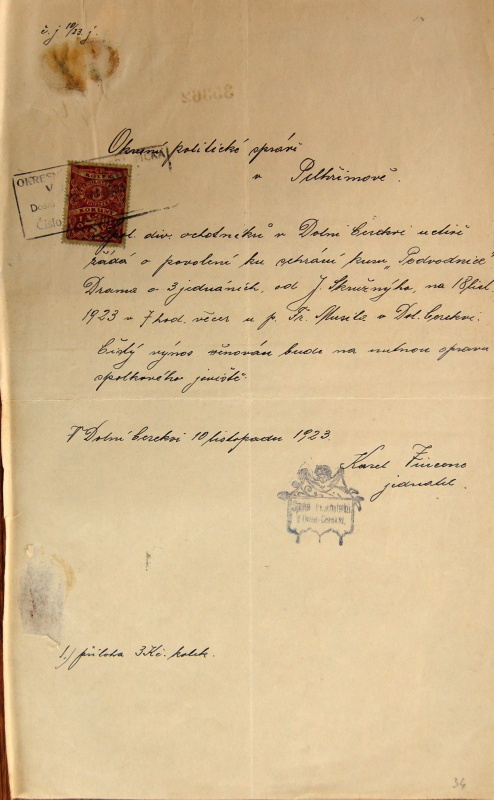 č. j. 10/23 j.
Okresní politické správě
v Pelhřimově.
OKRESNÍ
V
Došlo
Číslo
Spol. div. ochotníků v Dolní Cerekvi uctivě
žádá o povolení ku sehrání kusu „Podvodnice"
Drama o 3 jednáních, od J. Skružného, na 18/list.
1923 v 7 hod. večer u p. Fr. Musila v Dol. Cerekvi.
Čistý výnos věnován bude na nutnou opravu
spolkového jeviště.
V Dolní Cerekvi 10 listopadu 1923.
Karel
jednatel.
Spolek
v Dolní Cerekvi.
1.) příloha 3 Kč. kolek.
34